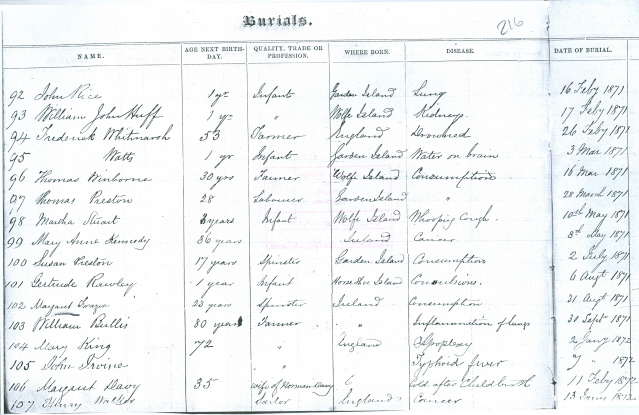 Burials.
216
NAME. AGE NEXT BIRTH-DAY. QUALITY, TRADE OR PROFESSION. WHERE BORN. DISEASE. DATE OF BURIAL.
92 John Rice 1 yr Infant Garden Island Lung 16 Feby 1871
93 William John Huff 1 yr " Wolfe Island Kidneys 17 Feby 1871
94 Frederick Whitmarsh 53 Farmer England Drowned 26 Feby 1871
95 Watts 1 yr Infant Garden Island Water on brain 3 Mar 1871
96 Thomas Winborne 30 yrs Farmer Wolfe Island Consumption 16 Mar 1871
97 Thomas Preston 28 Labourer Garden Island " 28 March 1871
98 Martha Stuart 3 years Infant Wolfe Island Whooping Cough. 10th May 1871
99 Mary Anne Kennedy 36 years Ireland Cancer 8th May 1871
100 Susan Preston 17 years Spinster Garden Island Consumption 2 July 1871
101 Gertrude Rawley 1 year Infant Island Convulsions. 6 Augt 1871
102 Margaret 23 years Spinster Ireland Consumption 31 Augt 1871
103 William Bullis 80 years Farmer " Inflammation of lungs 30 Sept 1871
104 Mary King 72 " England Apoplexy 2 Jany 1872
105 John Irvine " Typhoid fever 7 " 1872
106 Margaret Davy 35 wife of Norman Davy Cold after Childbirth 11 Feby 1872
107 Henry Walker Sailor England Cancer 13 1872